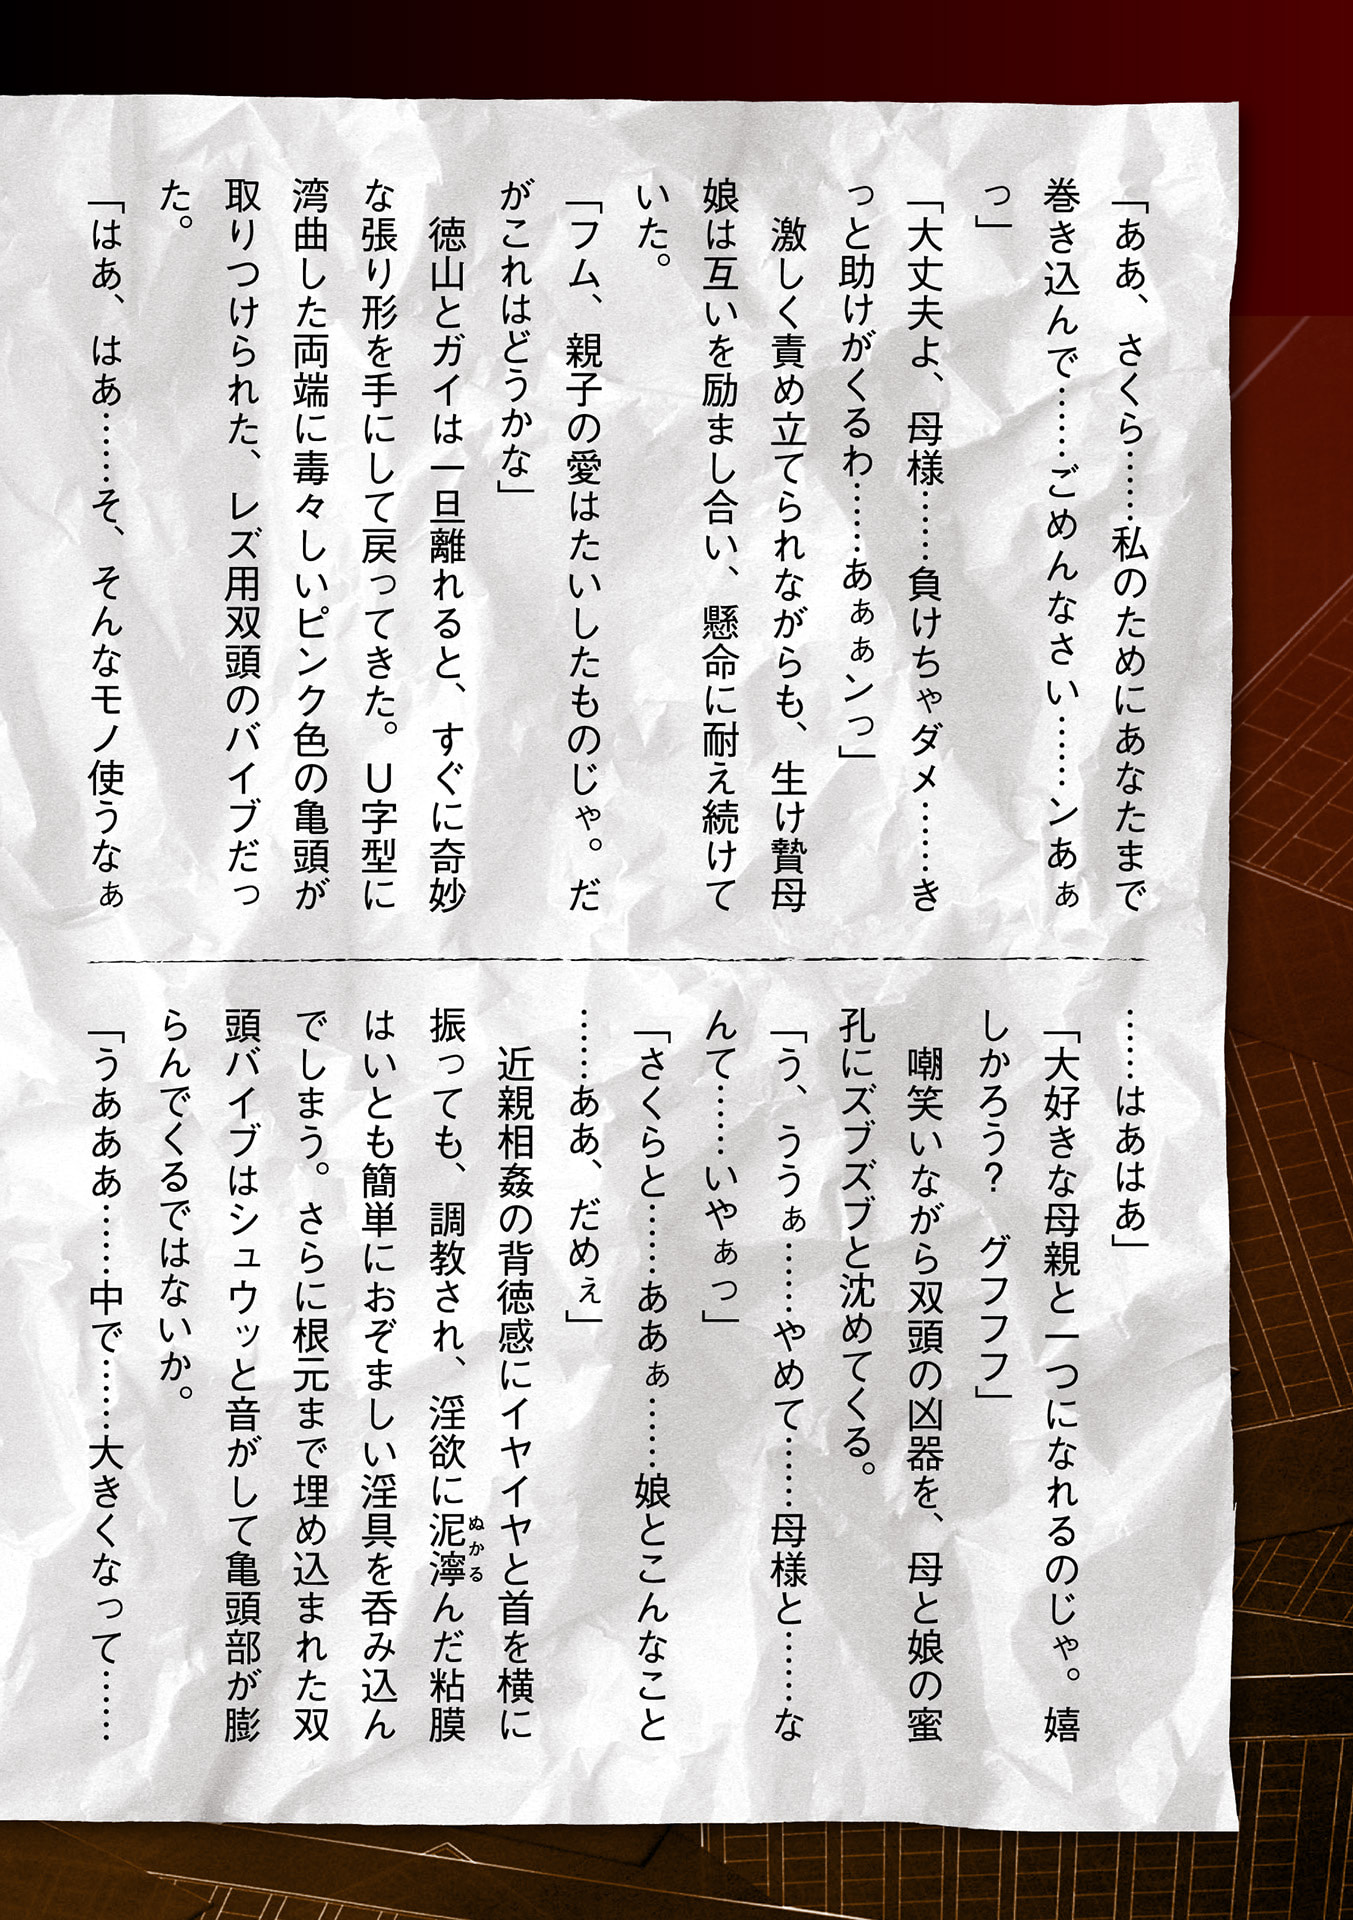 「ああ、さくら……私のためにあなたまで
巻き込んで……ごめんなさい……ンあぁ
っ」
「大丈夫よ、母様……負けちゃダメ……き
っと助けがくるわ……あぁぁンっ」
　激しく責め立てられながらも、生け贄母
娘は互いを励まし合い、懸命に耐え続けて
いた。
「フム、親子の愛はたいしたものじゃ。だ
がこれはどうかな」
　徳山とガイは一旦離れると、すぐに奇妙
な張り形を手にして戻ってきた。U字型に
湾曲した両端に毒々しいピンク色の亀頭が
取りつけられた、レズ用双頭のバイブだっ
た。
「はあ、はあ……そ、そんなモノ使うなぁ
……はあはあ」
「大好きな母親と一つになれるのじゃ。嬉
しかろう？　グフフフ」
　嘲笑いながら双頭の凶器を、母と娘の蜜
孔にズブズブと沈めてくる。
「う、ううぁ……やめて……母様と……な
んて……いやぁっ」
「さくらと……ああぁ……娘とこんなこと
……ああ、だめぇ」
　近親相姦の背徳感にイヤイヤと首を横に
振っても、調教され、淫欲に泥濘んだ粘膜
ぬかる
はいとも簡単におぞましい淫具を呑み込ん
でしまう。さらに根元まで埋め込まれた双
頭バイブはシュウッと音がして亀頭部が膨
らんでくるではないか。
「うあああ……中で……大きくなって……